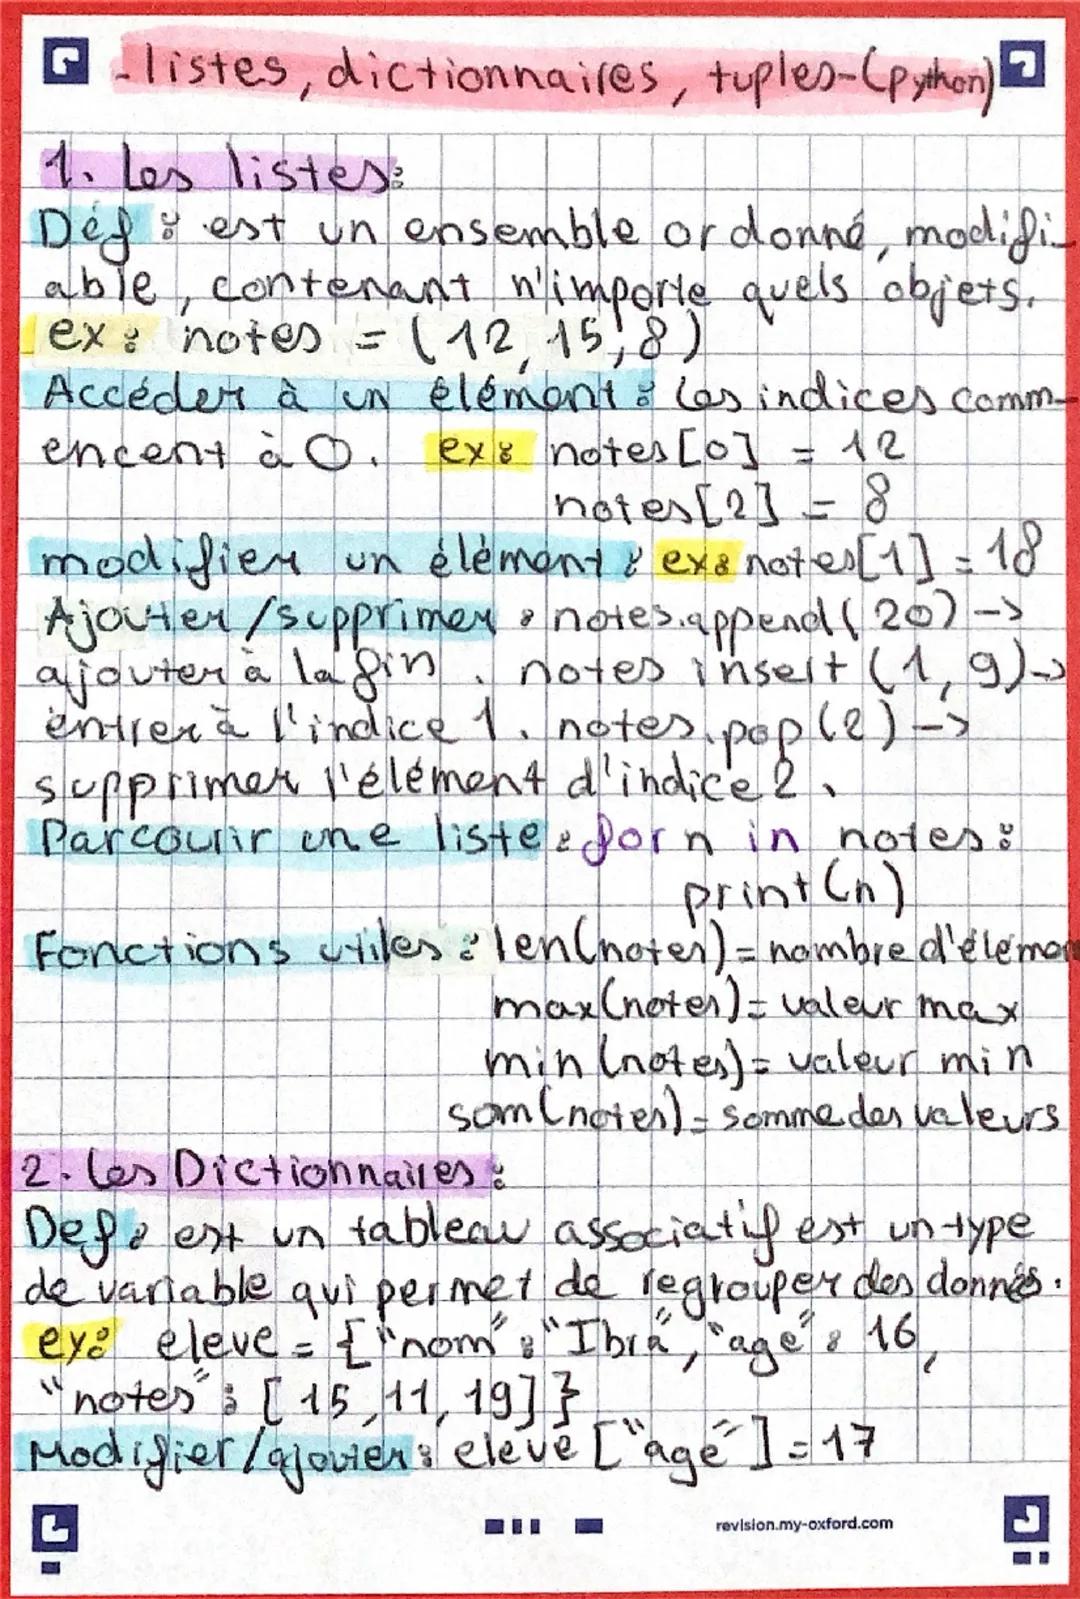 -listes, dictionnaires, tuples-(python)
1. Les listes:
Déf : est un ensemble ordonné, modifi-
able, contenant n'importe quels objets.
ex : notes = (12, 15, 8)
Accéder à un élément : Les indices comm-
encent à 0. ex : notes[0] = 12
notes[2] = 8
modifier un élément : ex : notes[1] = 18
Ajouter/supprimer : notes.append(20) ->
ajouter à la fin. notes insert (1, 9)->
entrer à l'indice 1. notes.pop(2) ->
supprimer l'élément d'indice 2.
Parcourir une liste : for n in notes :
print(n)
Fonctions utiles : len(notes) = nombre d'élémen
max(notes) = valeur max
min (notes) = valeur min
som(notes) = somme des valeurs
2. Les Dictionnaires :
Def : est un tableau associatif est un type
de variable qui permet de regrouper des donnés.
ex : eleve = {"nom" : "Ibra", "age" : 16,
"notes" : [15, 11, 19]}
Modifier/ajouter : eleve ["age"] = 17
revision.my-oxford.com